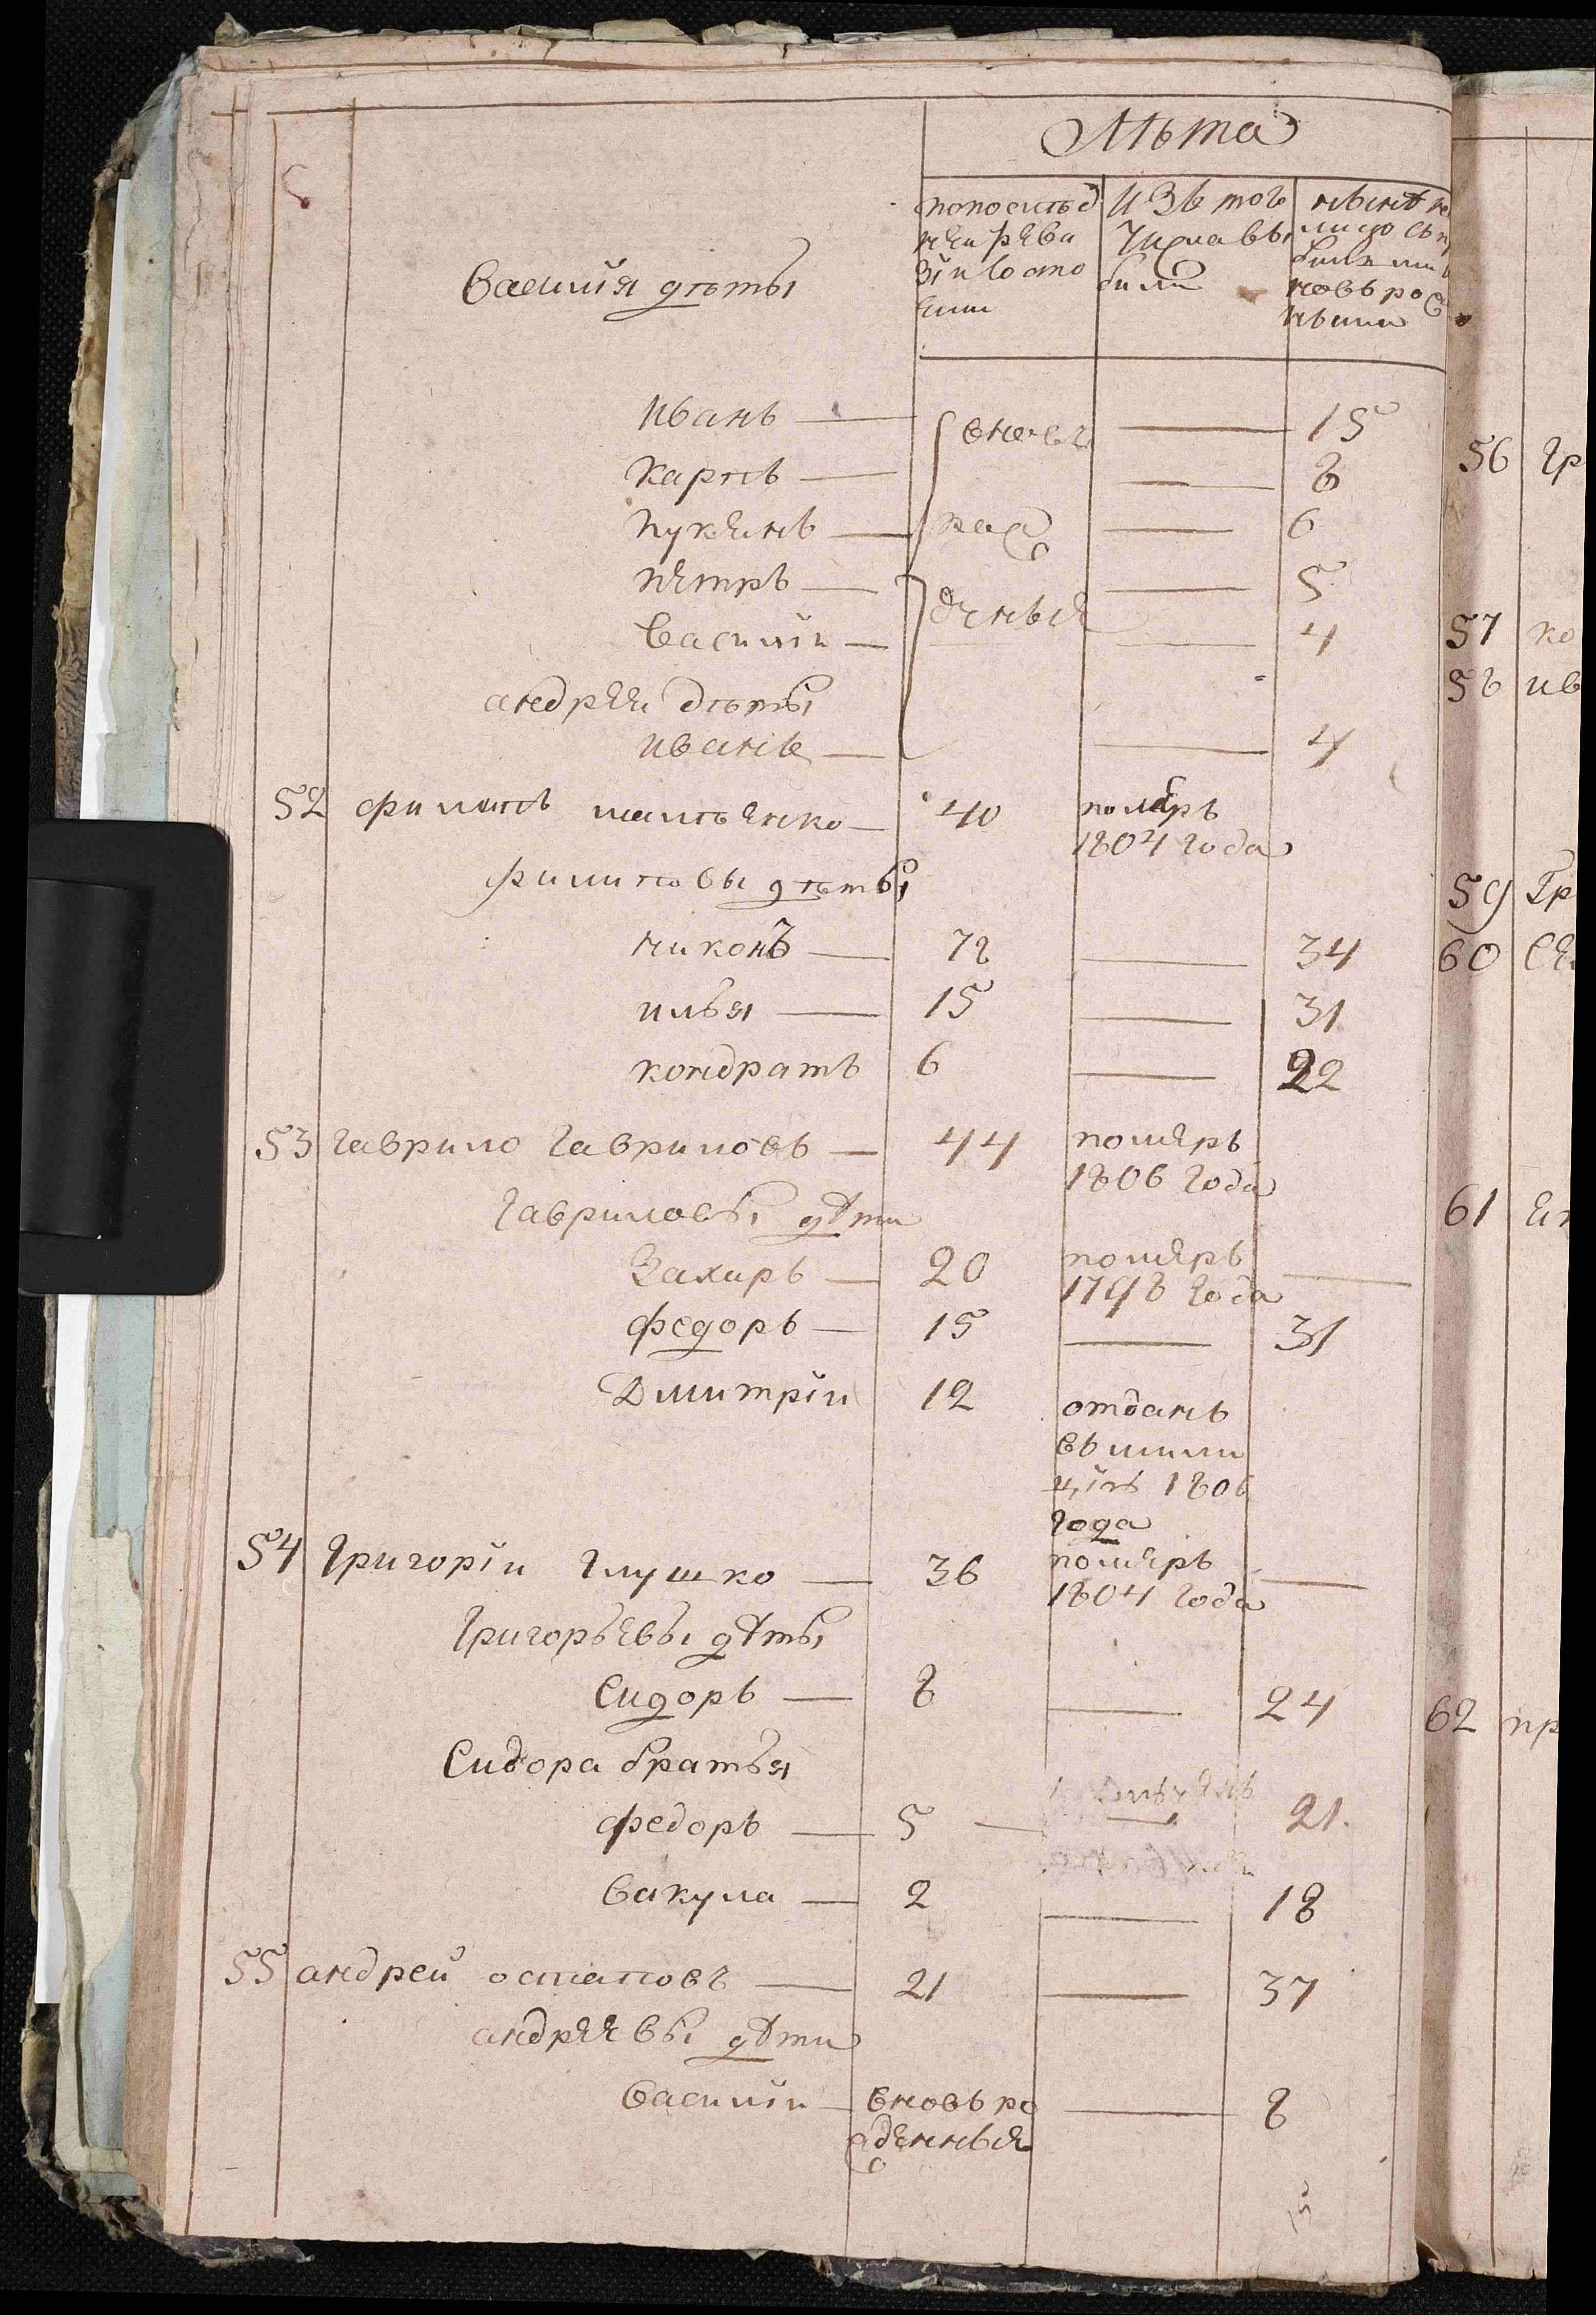 Лѣта
по послѣд
ней реви
зіи состо
яли
изъ тог
числа вы
были
нынѣ на
лицо съ
новъ рож
Василія дѣты
Иванъ — вновь — 15
Карпъ — — 8
Лукянъ — рож — 6
Петръ — — 5
денныя
Василіи — — 4
андрея дѣты
иванъ — — 4
52 филипъ — 40 померъ
1804 года
филиповы дѣты
никонъ — 18 — 34
илья — 15 — 31
кондратъ 6 — 22
53 гаврило гавриловъ — 44 померъ
1806 года
гавриловы дѣти
Захаръ — 20 померъ —
1798 года
федоръ — 15 — 31
Дмитріи 12 отданъ
въ мили
цію 1806
года
54 григоріи глушко — 36 померъ —
1804 года
григорьевы дѣты
Сидоръ — 8 — 24
Сидора братья
федоръ — 5 — — 21.
Вакула — 2 — 18
55 андрей остаповъ — 21 — 37
андреевы дѣти
василіи — вновь ро — 8
жденныя
56 гр
57 ко
58 ив
59 Гр
60 се
61 ен
62 пр